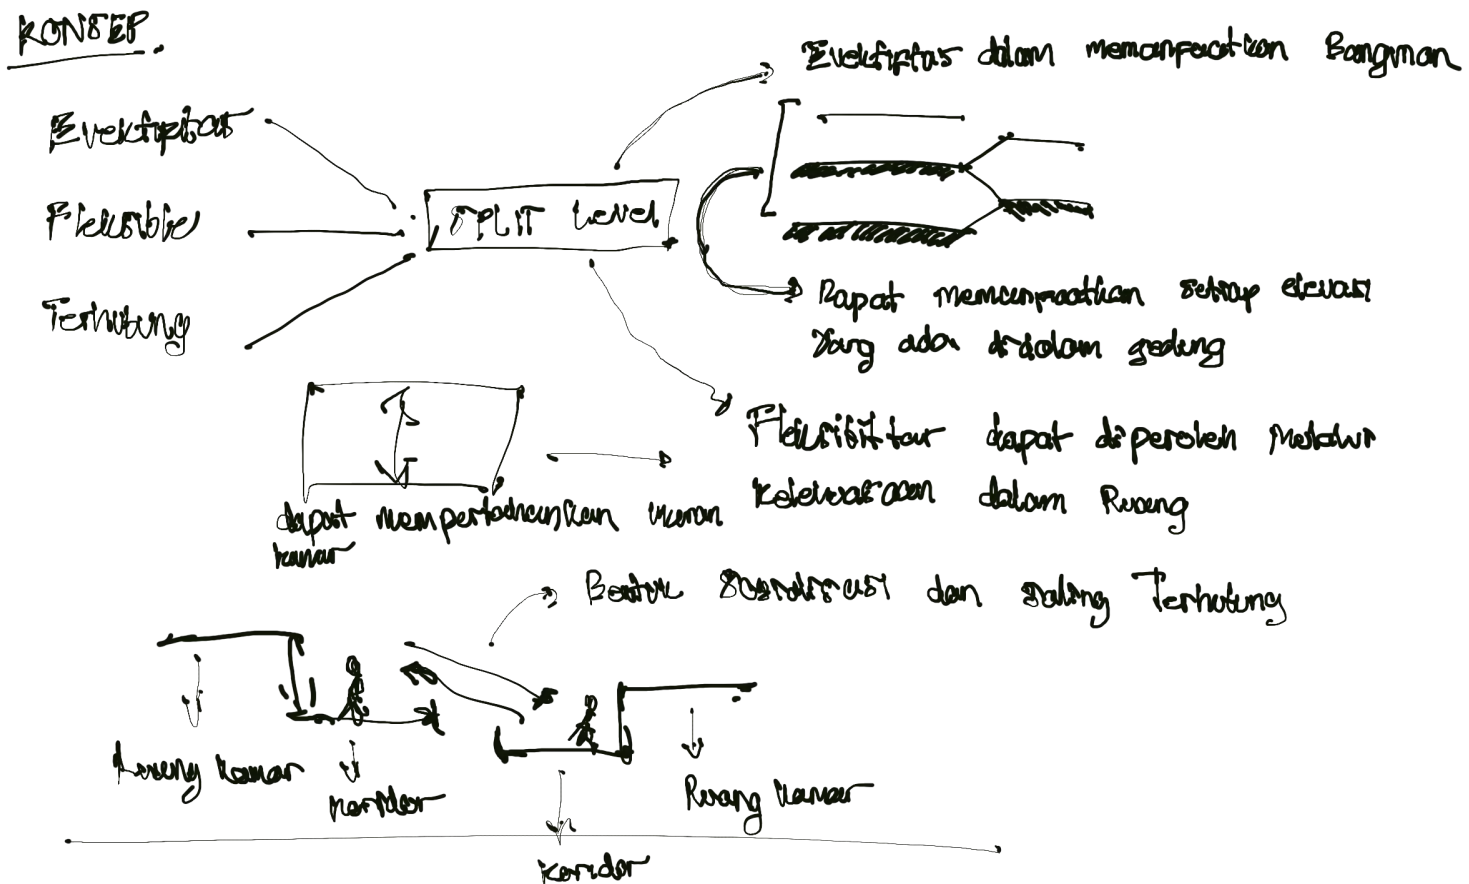 KONSEP.
Evektifitas
Fleksible
Terhubung
SPLIT Level
Evektifitas dalam memanfaatkan Bangunan
Dapat memanfaatkan setiap elevasi
Yang ada didalam gedung
Fleksibilitas dapat diperoleh Melalui
Keleluasaan dalam Ruang
dapat mempertahankan ukuran
kamar
Bentuk Sosialisasi dan saling Terhubung
Ruang kamar
Koridor
Ruang kamar
Koridor